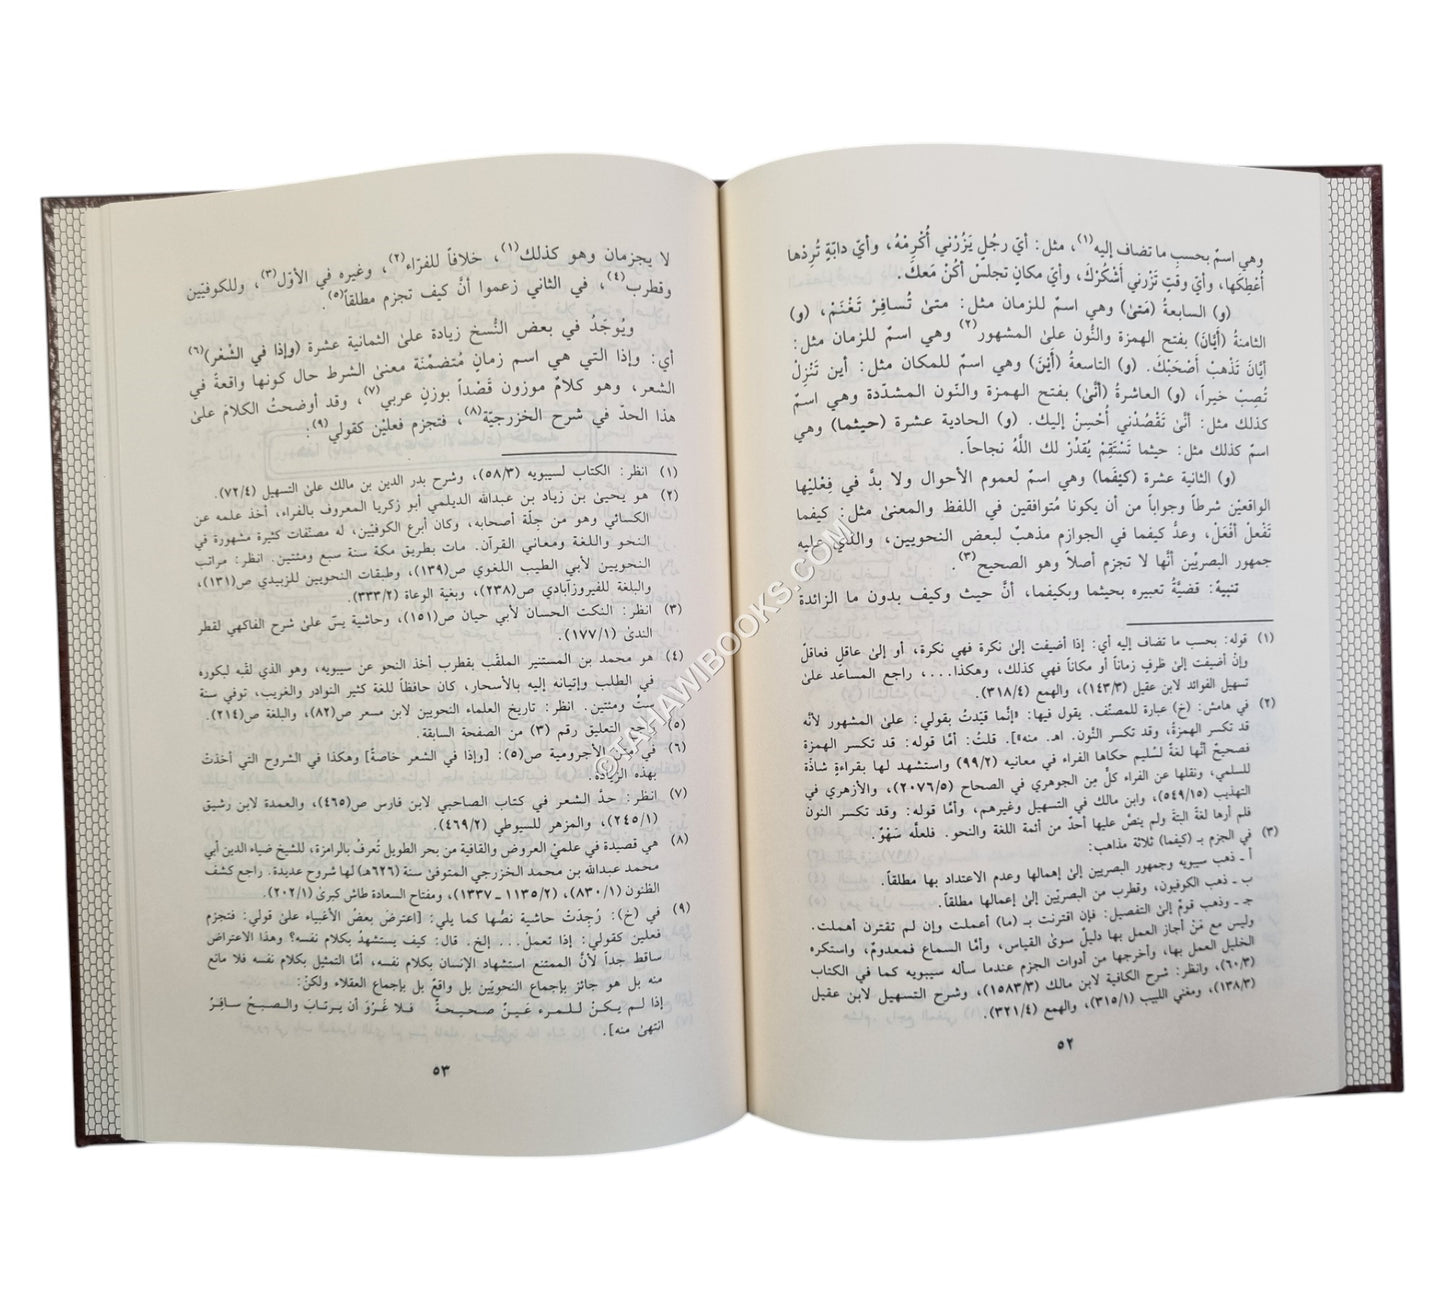 وهي اسمٌ بحسبِ ما تضاف إليه(١)، مثل: أيّ رجُلٍ يَزُرْني أُكْرِمْهُ، وأيّ دابّةٍ تُرِدْها
أُعْطِكَها، وأيّ وقتٍ تَزُرني أَشْكُرْكَ، وأيّ مكانٍ تجلسْ أكُنْ مَعكَ.
(و) السابعةُ (مَتىٰ) وهي اسمٌ للزمان مثل: متىٰ تُسافِرْ تَغْنَمْ، (و)
الثامنةُ (أيّانَ) بفتح الهمزة والنُّون علىٰ المشهور(٢) وهي اسمٌ للزمان مثل:
أيّانَ تَذْهَبْ أَصْحَبْكَ. (و) التاسعةُ (أَيْنَ) وهي اسمٌ للمكان مثل: أين تَنْزِلْ
تُصِبْ خيراً، (و) العاشرةُ (أنّىٰ) بفتح الهمزة والنّون المشدّدة وهي اسمٌ
كذلك مثل: أنّىٰ تَقْصُدْني أُحْسِنْ إليك. (و) الحادية عشرة (حيثما) وهي
اسمٌ كذلك مثل: حيثما تَسْتَقِمْ يُقدِّرْ لك اللَّهُ نجاحاً.
(و) الثانية عشرة (كيْفَما) وهي اسمٌ لعموم الأحوال ولا بدَّ في فِعْليْها
الواقعيْن شرطاً وجواباً من أن يكونا مُتوافقين في اللفظ والمعنىٰ مثل: كيفما
تَفْعلْ أفْعَلْ، وعدُّ كيفما في الجوازم مذهبٌ لبعض النحويين، والذي عليه
جمهور البصريّين أنَّها لا تجزم أصلاً وهو الصحيح(٣).
تنبيهٌ: قضيَّةُ تعبيره بحيثما وبكيفما، أنَّ حيث وكيف بدون ما الزائدة
(١) قوله: بحسب ما تضاف إليه أي: إذا أضيفت إلىٰ نكرة فهي نكرة، أو إلىٰ عاقلٍ فعاقلٌ
وإنْ أضيفت إلىٰ ظرفٍ زماناً أو مكاناً فهي كذلك، وهكذا...، راجع المساعد علىٰ
تسهيل الفوائد لابن عقيل (١٤٣/٣)، والهمع (٣١٨/٤).
(٢) في هامش: (خ) عبارة للمصنّف. يقول فيها: «إنَّما قيّدتُ بقولي: علىٰ المشهور لأنَّه
قد تكسر الهمزةُ، وقد تكسر النُّون. اهـ. منه»]. قلتُ: أمَّا قوله: قد تكسر الهمزة
فصحيحٌ أنَّها لغةٌ لسُليم حكاها الفراء في معانيه (٩٩/٢) واستشهد لها بقراءةٍ شاذّة
للسلمي، ونقلها عن الفراء كلٌ من الجوهري في الصحاح (٢٠٧٦/٥)، والأزهري في
التهذيب (٥٤٩/١٥)، وابن مالك في التسهيل وغيرهم، وأمَّا قوله: وقد تكسر النون
فلم أرها لغة البتة ولم ينصّ عليها أحدٌ من أئمة اللغة والنحو. فلعلَّه سَهْوٌ.
(٣) في الجزم بـ (كيفما) ثلاثة مذاهب:
أ ـ ذهب سيبويه وجمهور البصريين إلى إهمالها وعدم الاعتداد بها مطلقاً.
ب ـ ذهب الكوفيون، وقطرب من البصريّين إلىٰ إعمالها مطلقاً.
جـ ـ وذهب قومٌ إلىٰ التفصيل: فإن اقترنت بـ (ما) أعملت وإن لم تقترن أهملت.
وليس مع مَنْ أجاز العمل بها دليلٌ سوىٰ القياس، وأمَّا السماع فمعدومٌ، واستكره
الخليل العمل بها، وأخرجها من أدوات الجزم عندما سأله سيبويه كما في الكتاب
(٦٠/٣)، وانظر: شرح الكافية لابن مالك (١٥٨٣/٣)، وشرح التسهيل لابن عقيل
(١٣٨/٣)، ومغني اللبيب (٣١٥/١)، والهمع (٣٢١/٤).
٥٢
لا يجزمان وهو كذلك(١)، خلافاً للفرّاء(٢)، وغيره في الأوّل(٣)، وللكوفيّين
وقطرب(٤)، في الثاني زعموا أنَّ كيف تجزم مطلقاً(٥).
ويُوجَدُ في بعض النُّسخ زيادة علىٰ الثمانية عشرة (وإذا في الشّعْر)(٦)
أي: وإذا التي هي اسم زمانٍ مُتضمّنَة معنىٰ الشرط حال كونها واقعةً في
الشعر، وهو كلامٌ موزون قَصْداً بوزنٍ عربي(٧)، وقد أوضحتُ الكلامَ علىٰ
هذا الحدّ في شرح الخزرجيّة(٨)، فتجزم فعليْن كقولي(٩):
(١) انظر: الكتاب لسيبويه (٥٨/٣)، وشرح بدر الدين بن مالك علىٰ التسهيل (٧٢/٤).
(٢) هو يحيىٰ بن زياد بن عبدالله الديلمي أبو زكريا المعروف بالفراء، أخذ علمه عن
الكسائي وهو من جِلّة أصحابه، وكان أبرع الكوفيّين، له مصنّفات كثيرة مشهورة في
النحو واللغة ومعاني القرآن. مات بطريق مكة سنة سبع ومئتين. انظر: مراتب
النحويين لأبي الطيب اللغوي ص(١٣٩)، وطبقات النحويين للزبيدي ص(١٣١)،
والبلغة للفيروزآبادي ص(٢٣٨)، وبغية الوعاة (٣٣٣/٢).
(٣) انظر: النكت الحسان لأبي حيان ص(١٥١)، وحاشية يسٓ علىٰ شرح الفاكهي لقطر
الندىٰ (١٧٧/١).
(٤) هو محمد بن المستنير الملقّب بقطرب أخذ النحو عن سيبويه، وهو الذي لقبه لبكوره
في الطلب وإتيانه إليه بالأسحار، كان حافظاً للغة كثير النوادر والغريب، توفي سنة
ستٌ ومئتين. انظر: تاريخ العلماء النحويين لابن مسعر ص(٨٢)، والبلغة ص(٢١٤).
(٥) التعليق رقم (٣) من الصفحة السابقة.
(٦) في الأجرومية ص(٥): [وإذا في الشعر خاصة] وهكذا في الشروح التي أخذتْ
بهذه الزيادة.
(٧) انظر: حدّ الشعر في كتاب الصاحبي لابن فارس ص(٤٦٥)، والعمدة لابن رشيق
(٢٤٥/١)، والمزهر للسيوطي (٤٦٩/٢).
(٨) هي قصيدة في علميْ العروض والقافية من بحر الطويل تُعرفُ بالرامزة، للشيخ ضياء الدين أبي
محمد عبدالله بن محمد الخزرجي المتوفىٰ سنة (٦٢٦هـ) لها شروح عديدة. راجع كشف
الظنون (٨٣٠/١)، (١١٣٥/٢ ـ ١٣٣٧)، ومفتاح السعادة طاش كبرىٰ (٢٠٢/١).
(٩) في (خ): وُجِدتْ حاشية نصُّها كما يلي: [اعترضَ بعضُ الأغبياء علىٰ قولي: فتجزم
فعلين كقولي: إذا تعملْ... إلخ. قال: كيف يستشهدُ بكلام نفسه؟ وهذا الاعتراض
ساقط جداً لأنَّ الممتنع استشهاد الإنسان بكلام نفسه، أمَّا التمثيل بكلام نفسه فلا مانع
منه بل هو جائز بإجماع النحويّين بل واقعٌ بل بإجماع العقلاء ولكنْ:
إذا لم يكنْ للمرء عَيـنٌ صحيحةٌ فلا غَرْوَ أن يرتابَ والصبحُ سافرُ
انتهىٰ منه].
٥٣
©TAHAWIBOOKS.COM